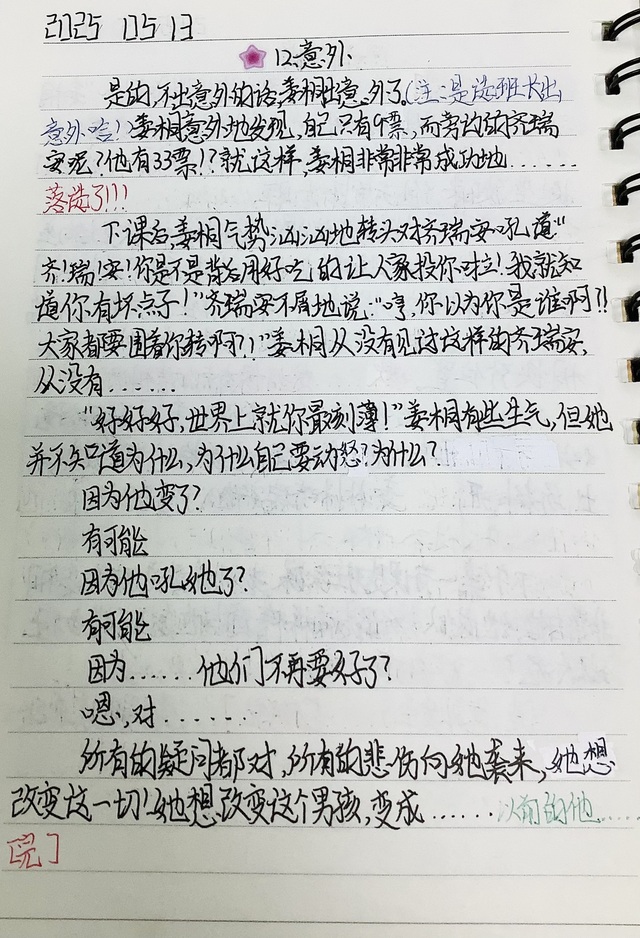 2025 05 13
12.意外
是的,不出意外的话,姜相出意外了。(注:是选班长出
意外哈!)姜相意外地发现,自己只有9票,而旁边的齐瑞
安呢?他有33票!?就这样,姜相非常非常成功地......
落选了!!!
下课后,姜相气势汹汹地转头对齐瑞安吼道"
齐!瑞!安!你是不是背后用好吃的让人家投你啦!我就知
道你有坏点子!"齐瑞安不屑地说:"哼,你以为你是谁啊?!
大家都要围着你转啊?!"姜相从没有见过这样的齐瑞安,
从没有......
"好好好,世界上就你最刻薄!"姜相有些生气,但她
并不知道为什么,为什么自己要动怒?为什么?
因为他变了?
有可能
因为他吼她了?
有可能
因为......他们不再要好了?
嗯,对......
所有的疑问都对,所有的悲伤向她袭来,她想
改变这一切!她想改变这个男孩,变成......以前的他......
[完]